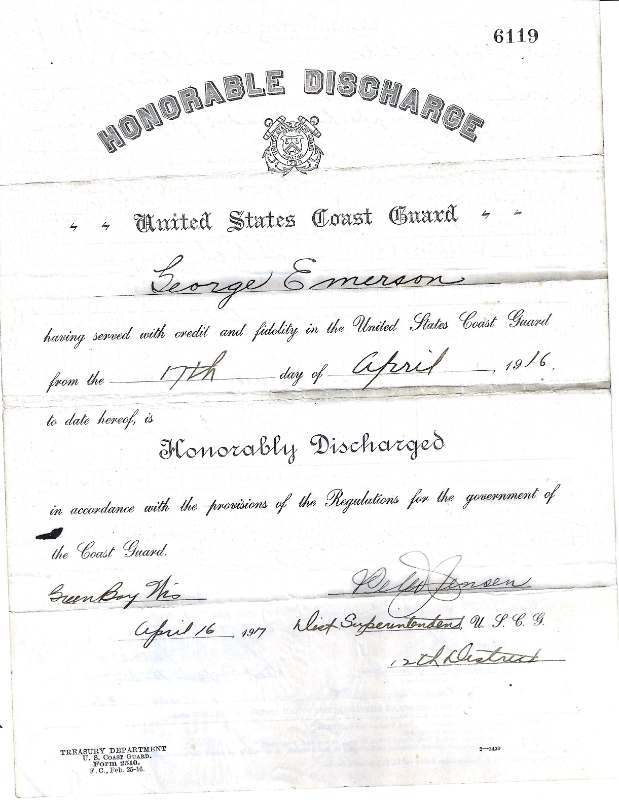 6119
HONORABLE DISCHARGE
United States Coast Guard
George Emerson
having served with credit and fidelity in the United States Coast Guard
from the 17th day of April, 1916.
to date hereof, is
Honorably Discharged
in accordance with the provisions of the Regulations for the government of
the Coast Guard.
Green Bay Wis Jensen
April 16 1917 Dist Superintendent, U. S. C. G.
12th District
TREASURY DEPARTMENT
U. S. COAST GUARD.
Form 2510.
F. C., Feb. 25-16.